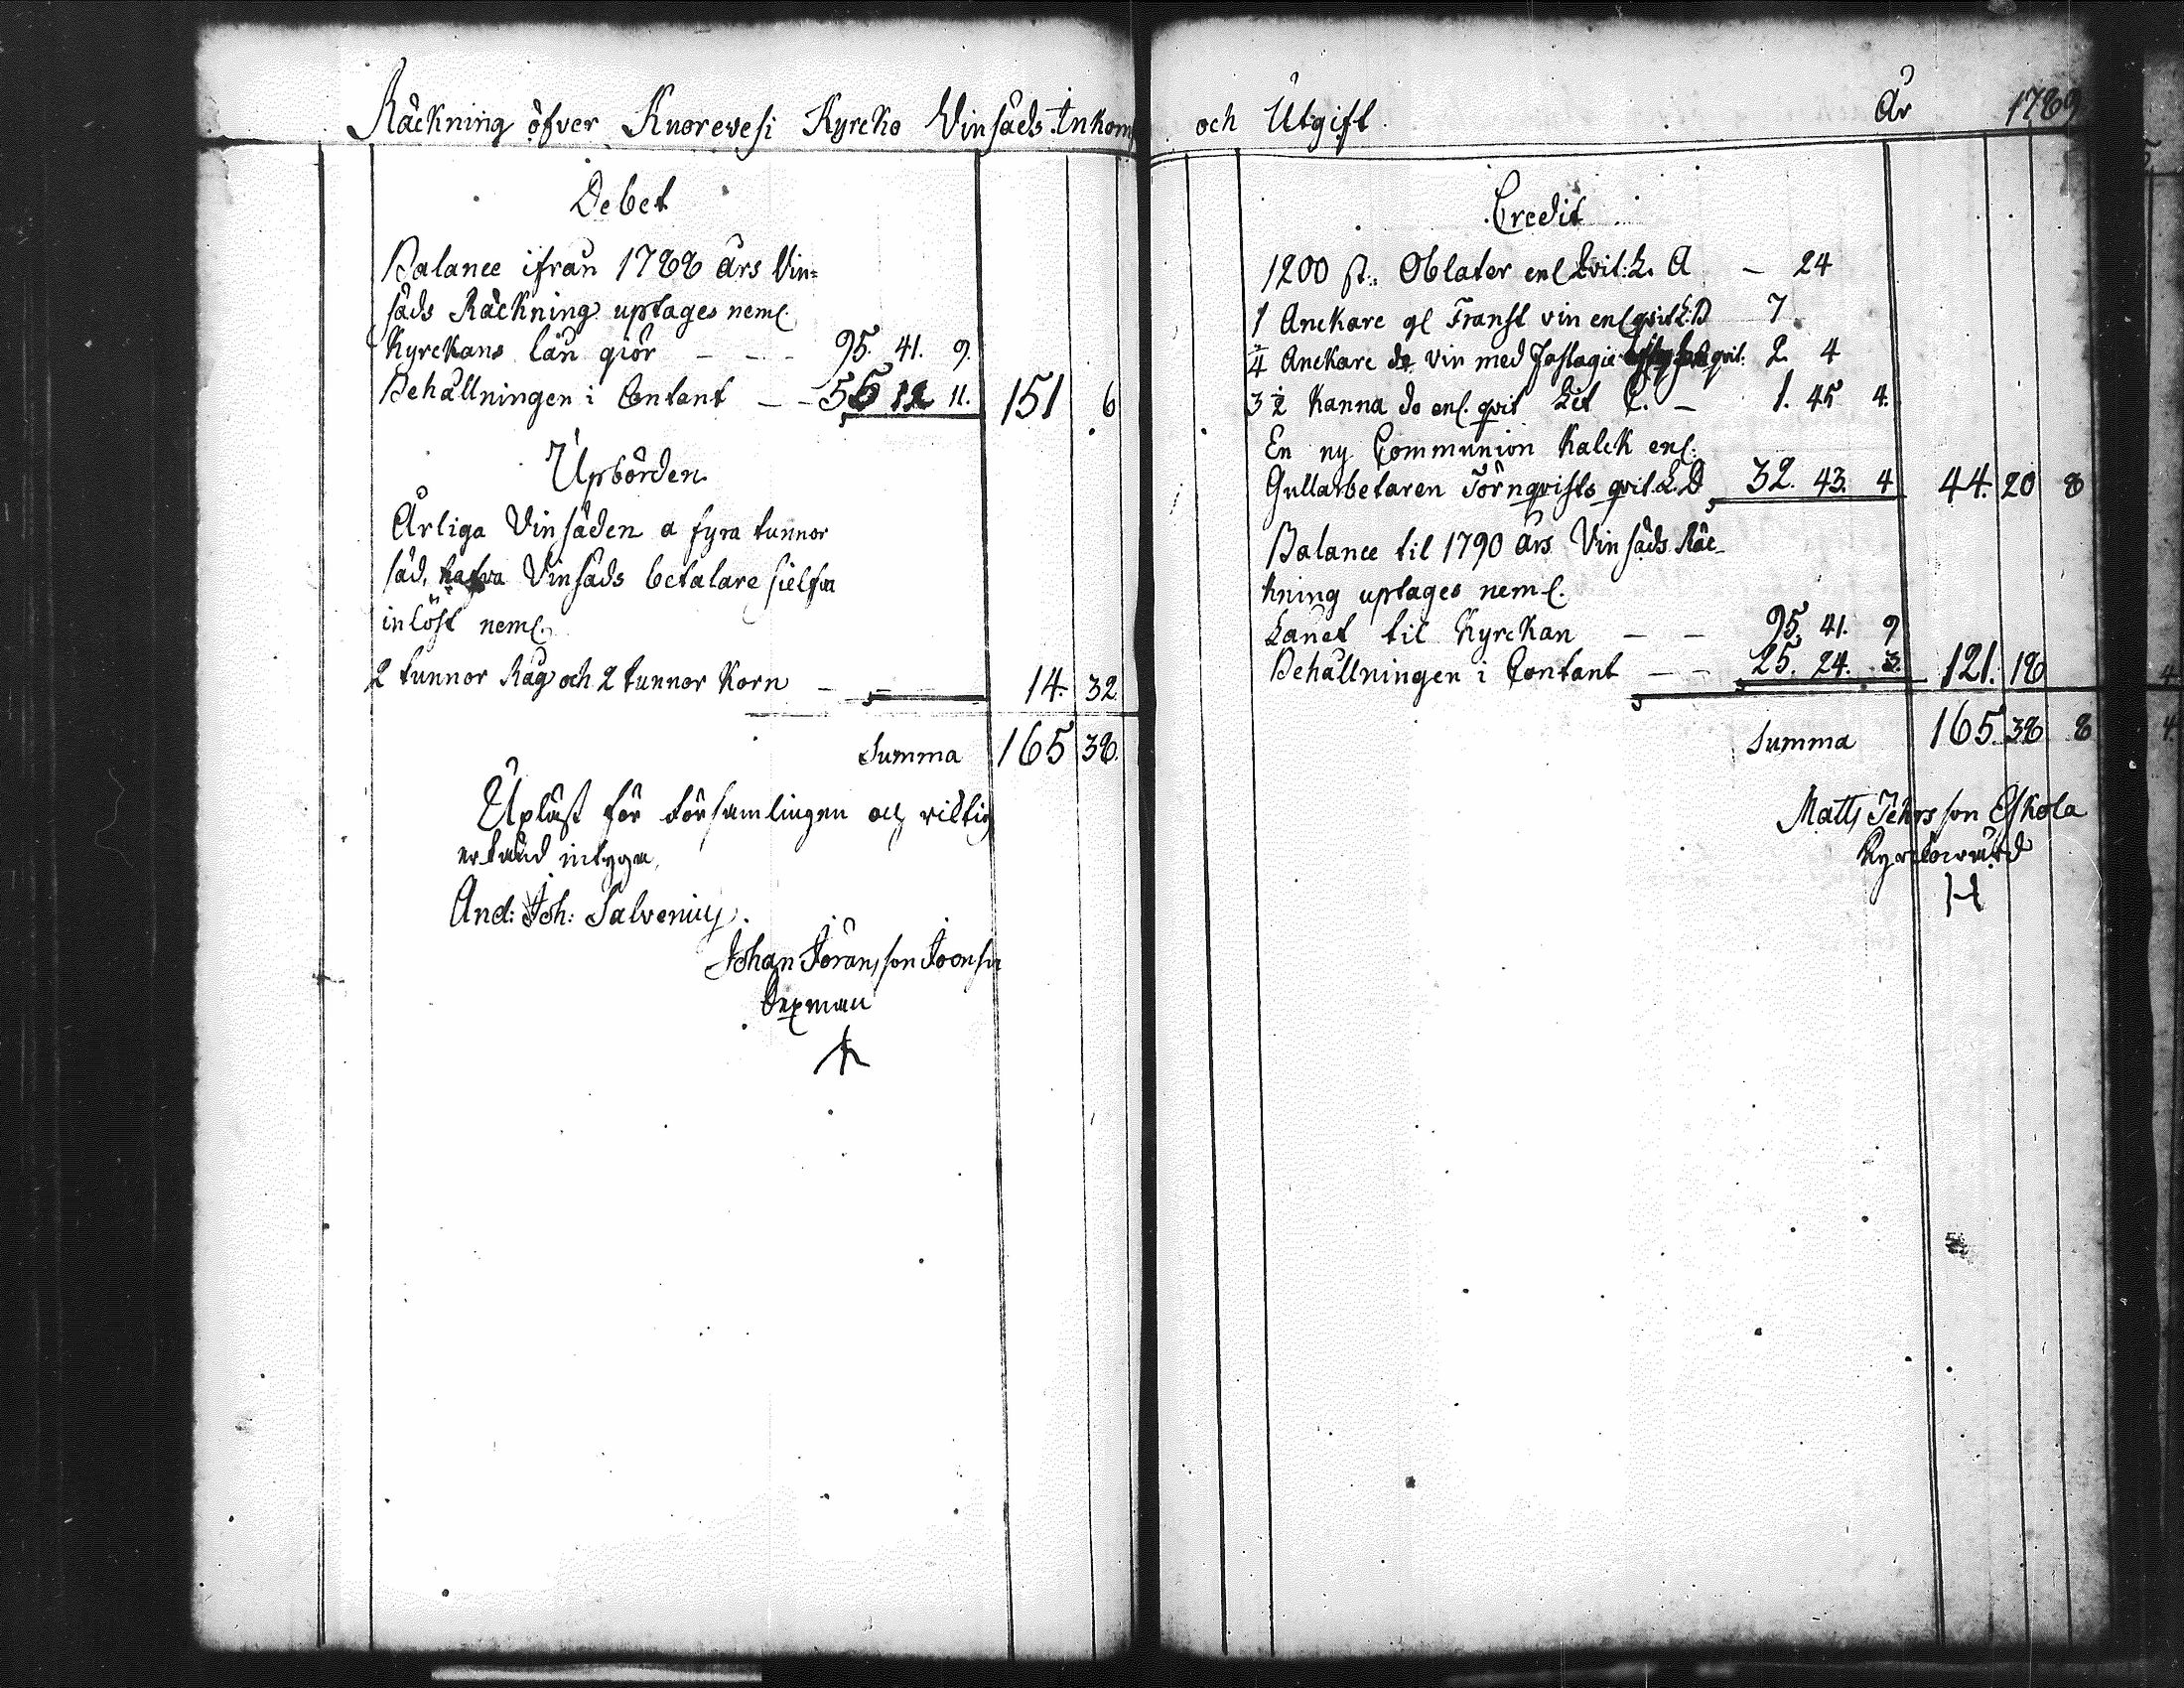 Räckning öfver Kuorevesi Kyrcko Vinsäds Inkom
Debet
Balance ifrån 1788 års Vin=
säds Räckning uptages neml.
Kyrckans lån giör — — 95. 41. 9.
Behållningen i Contant — — 55 12 11. 151 6
Upbörden
Årliga Vinsäden a fyra tunnor
säd, hafva Vinsäds betalare sielfva
inlöst neml.
2 tunnor Råg och 2 tunnor Korn — — 14. 32
Summa 165 38.
Upläst för Församlingen och riktig
erkänd intyga
And: Joh: Salvenius.
Johan Jöransson
Sexman
och Utgift. År 1789
Credit
1200 st.. Oblater enl Qvit: L. A — 24
1 Anckare gl Franst vin enl qvit L. B 7
Anckare do vin med Fastagie qvit. 2. 4
3 1/2 Kanna do enl. qvit Lit C. — 1. 45 4.
En ny Communion Kalck enl.
Gullarbetaren Törnqvists qvit. L. D 32. 43. 4 44. 20 8
Balance til 1790 års Vinsäds Räc-
kning uptages neml.
Lånet til Kyrckan — — 95. 41. 9
Behållningen i Contant — — 25. 24. 3. 121. 18
Summa 165. 38 8
Matts Eskola
Kyrckovärd